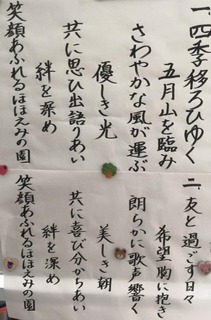 一、四季移ろひゆく
五月山を臨み
さわやかな風が運ぶ
優しき光
共に思ひ出語りあい
絆を深め
笑顔あふれるほほえみの園
二、友と過ごす日々
希望胸に抱き
朗らかに歌声響く
美しき朝
共に喜び分からあい
絆を深め
笑顔あふれるほほえみの園